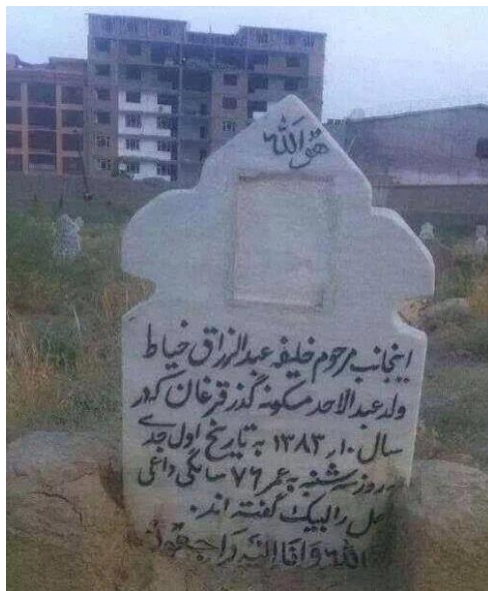 هو الله
اینجانب مرحوم خلیفه عبدالرزاق خیاط
ولد عبدالاحد مسکونه گذر قرغان که در
سال ۱۳۸۳ به تاریخ اول جدی
روز سه شنبه به عمر ۷۶ سالگی داعی
را لبیک گفته اند.
الله وانا الیه راجعون